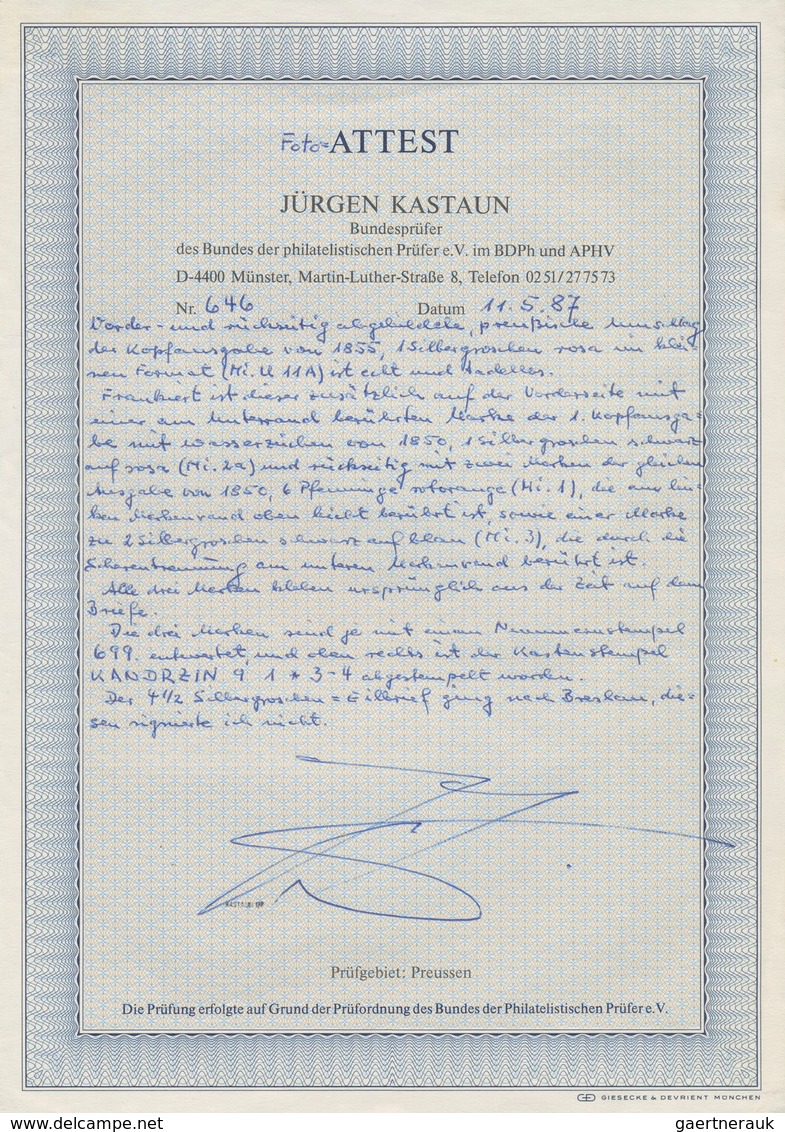 Foto=ATTEST
JÜRGEN KASTAUN
Bundesprüfer
des Bundes der philatelistischen Prüfer e.V. im BDPh und APHV
D-4400 Münster, Martin-Luther-Straße 8, Telefon 0251/277573
Nr. 646 Datum 11.5.87
Vorder- und rückseitig abgebildete, preußische Umschlag
der Kopfausgabe von 1855, 1 Silbergroschen rosa im klei=
nen Format (Mi. U 11A) ist echt und tadellos.
Frankiert ist dieser zusätzlich auf der Vorderseite mit
einer am Unterrand berührten Marke der 1. Kopfausga=
be mit Wasserzeichen von 1850, 1 Silbergroschen schwarz
auf rosa (Mi. 2a) und rückseitig mit zwei Marken der gleichen
Ausgabe von 1850, 6 Pfennige rotorange (Mi. 1), die am lin=
ken Markenrand oben leicht berührt ist, sowie einer Marke
zu 2 Silbergroschen schwarz auf blau (Mi. 3), die durch die
Scherentrennung am unteren Markenrand berührt ist.
Alle drei Marken kleben ursprünglich aus der Zeit auf dem
Briefe.
Die drei Marken sind je mit einem Nummernstempel
699. entwertet, und oben rechts ist der Kastenstempel
KANDRZIN 9 1 * 3-4 abgestempelt worden.
Der 4 1/2 Silbergroschen = Eilbrief ging nach Breslau, die=
sen signierte ich nicht.
KASTAUN BPP
Prüfgebiet: Preussen
Die Prüfung erfolgte auf Grund der Prüfordnung des Bundes der Philatelistischen Prüfer e.V.
GIESECKE & DEVRIENT MÜNCHEN
gaertnerauk